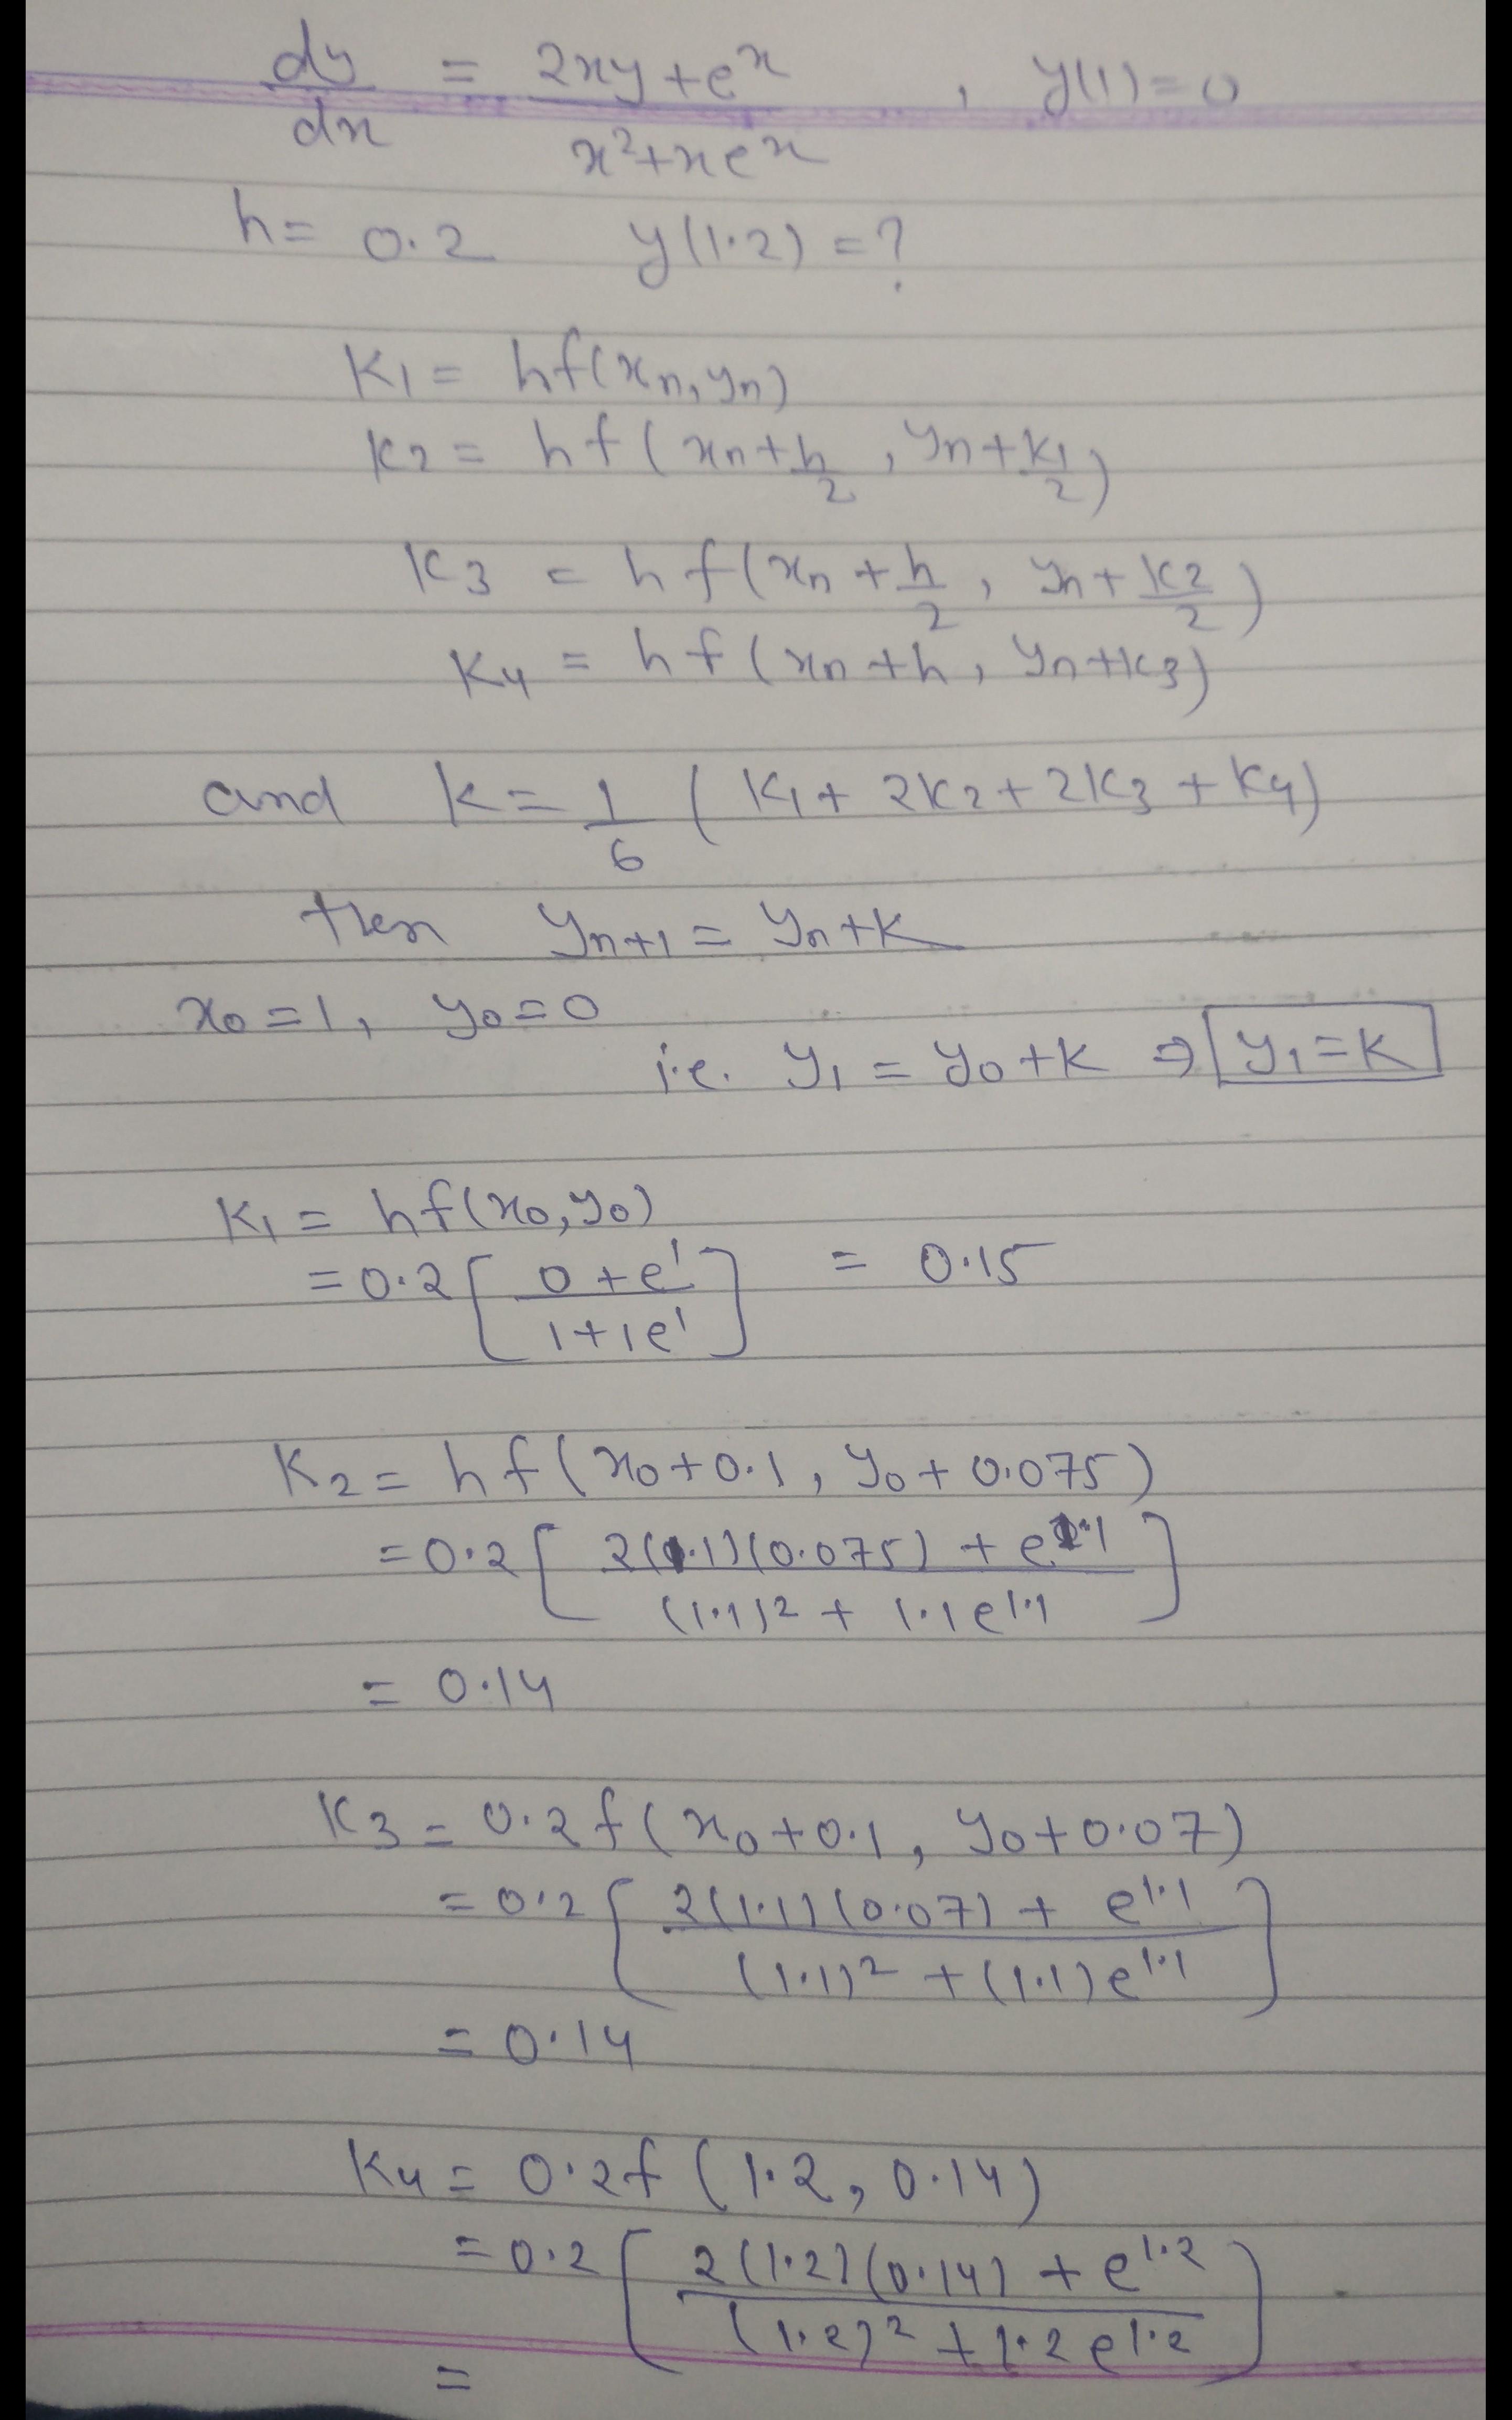 dy/dx = 2xy+e^x / x²+xe^x , y(1)=0
h= 0.2 y(1.2) = ?
K₁ = hf(xₙ, yₙ)
K₂ = hf(xₙ+h/2, yₙ+K₁/2)
K₃ = hf(xₙ+h/2, yₙ+K₂/2)
K₄ = hf(xₙ+h, yₙ+K₃)
and K = 1/6 (K₁+ 2K₂+ 2K₃ + K₄)
then yₙ₊₁ = yₙ+K
x₀ = 1, y₀=0
i.e. y₁ = y₀+K ⇒ y₁=K
K₁ = hf(x₀, y₀)
= 0.2 [ 0+e¹ / 1+1e¹ ] = 0.15
K₂ = hf(x₀+0.1, y₀+0.075)
= 0.2 [ 2(1.1)(0.075) + e^1.1 / (1.1)² + 1.1e^1.1 ]
= 0.14
K₃ = 0.2f(x₀+0.1, y₀+0.07)
= 0.2 [ 2(1.1)(0.07) + e^1.1 / (1.1)² + (1.1)e^1.1 ]
= 0.14
K₄ = 0.2f(1.2, 0.14)
= 0.2 [ 2(1.2)(0.14) + e^1.2 / (1.2)² + 1.2e^1.2 ]
=